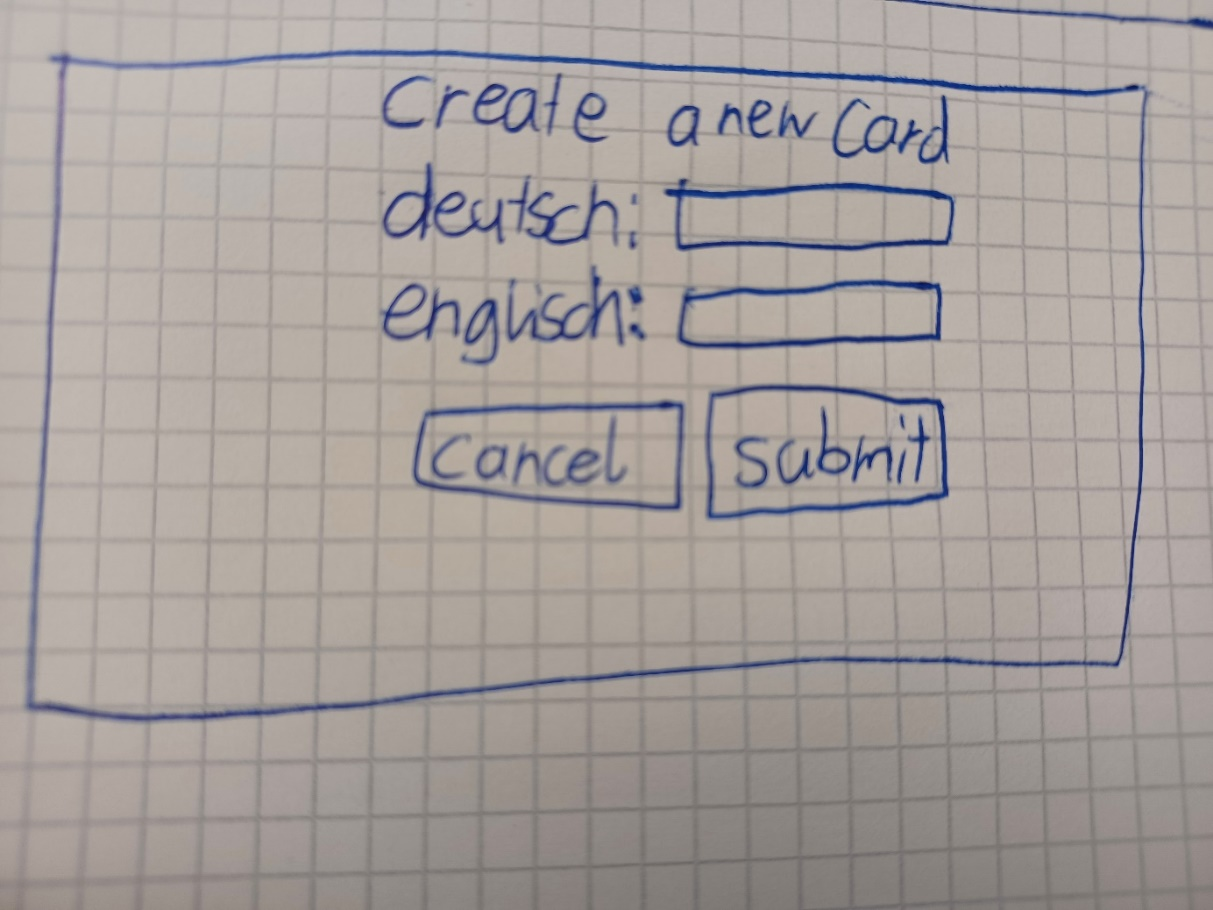 Create a new Card
deutsch:
englisch:
cancel submit